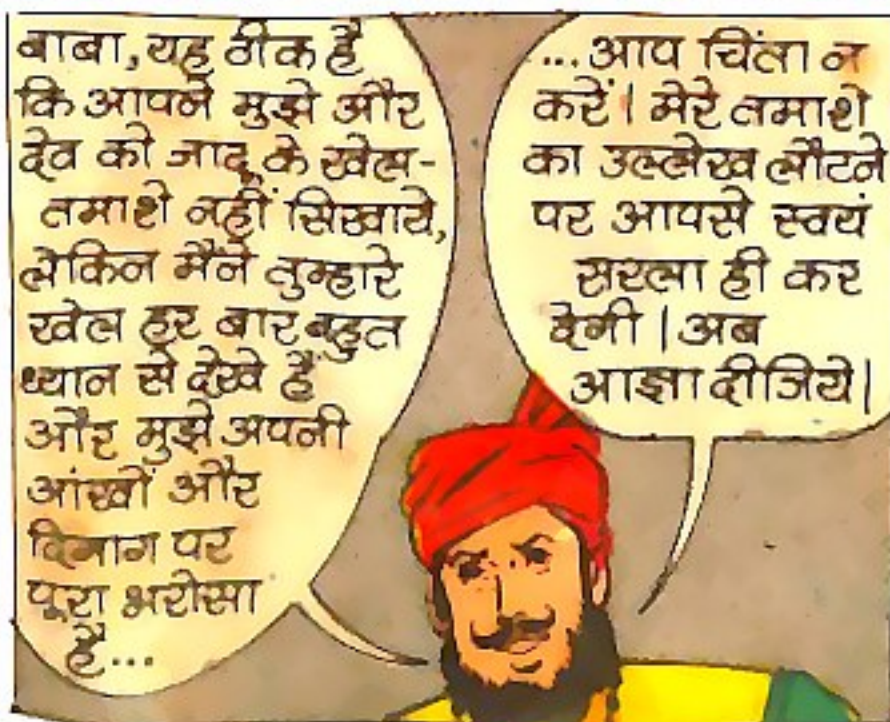 बाबा, यह ठीक है
कि आपने मुझे और
देव को जादू के खेल-
तमाशे नहीं सिखाये,
लेकिन मैंने तुम्हारे
खेल हर बार बहुत
ध्यान से देखे हैं
और मुझे अपनी
आंखों और
दिमाग पर
पूरा भरोसा
है...
...आप चिंता न
करें। मेरे तमाशे
का उल्लेख लौटने
पर आपसे स्वयं
सरला ही कर
देगी। अब
आज्ञा दीजिये।